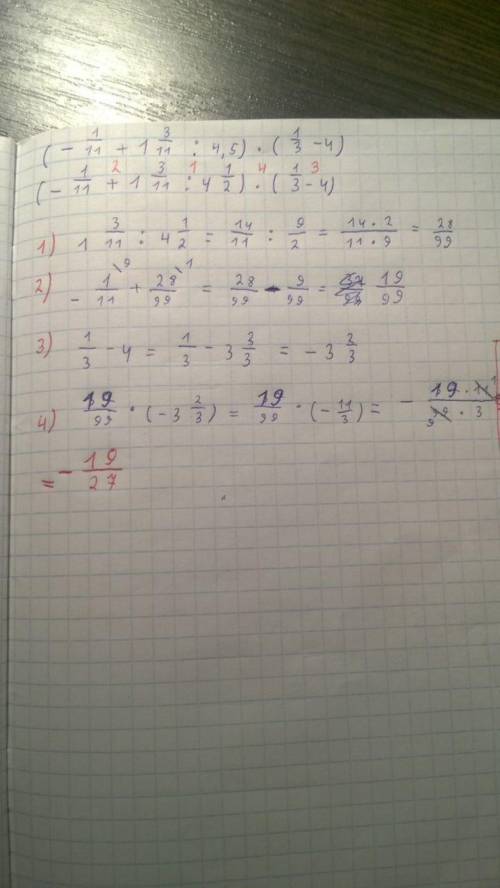 (- 1/11 + 1 3/11 : 4,5) · (1/3 - 4)
2 1 4 3
(- 1/11 + 1 3/11 : 4 1/2) · (1/3 - 4)
1) 1 3/11 : 4 1/2 = 14/11 : 9/2 = 14 · 2/11 · 9 = 28/99
2) - 1\9/11 + 28\1/99 = 28/99 - 9/99 = 19/99
3) 1/3 - 4 = 1/3 - 3 3/3 = - 3 2/3
4) 19/99 · (- 3 2/3) = 19/99 · (- 11/3) = - 19 · 11 1/99 9 · 3
= - 19/27